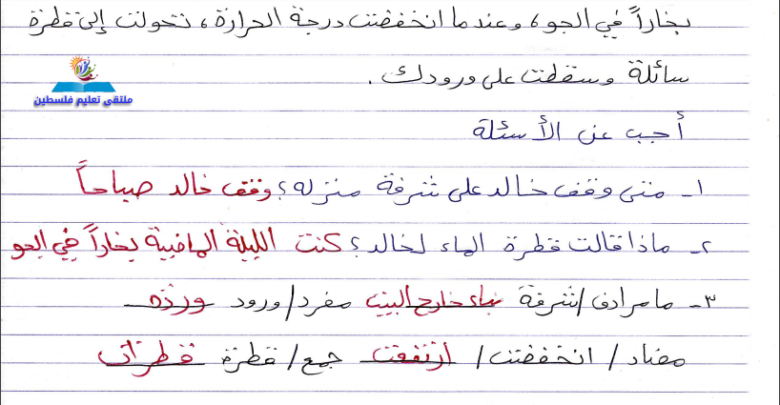 بخاراً في الجو، وعندما انخفضت درجة الحرارة، تحولت إلى قطرة
سائلة وسقطت على ورودك.
ملتقى تعليم فلسطين
أجب عن الأسئلة
١- متى وقف خالد على شرفة منزله؟ وقف خالد صباحاً
٢- ماذا قالت قطرة الماء لخالد؟ كنت الليلة الماضية بخاراً في الجو
٣- ما مرادف/شرفة بناء خارج البيت مفرد/ورود وردة
مضاد/ انخفضت/ ارتفعت جمع/ قطرة قطرات